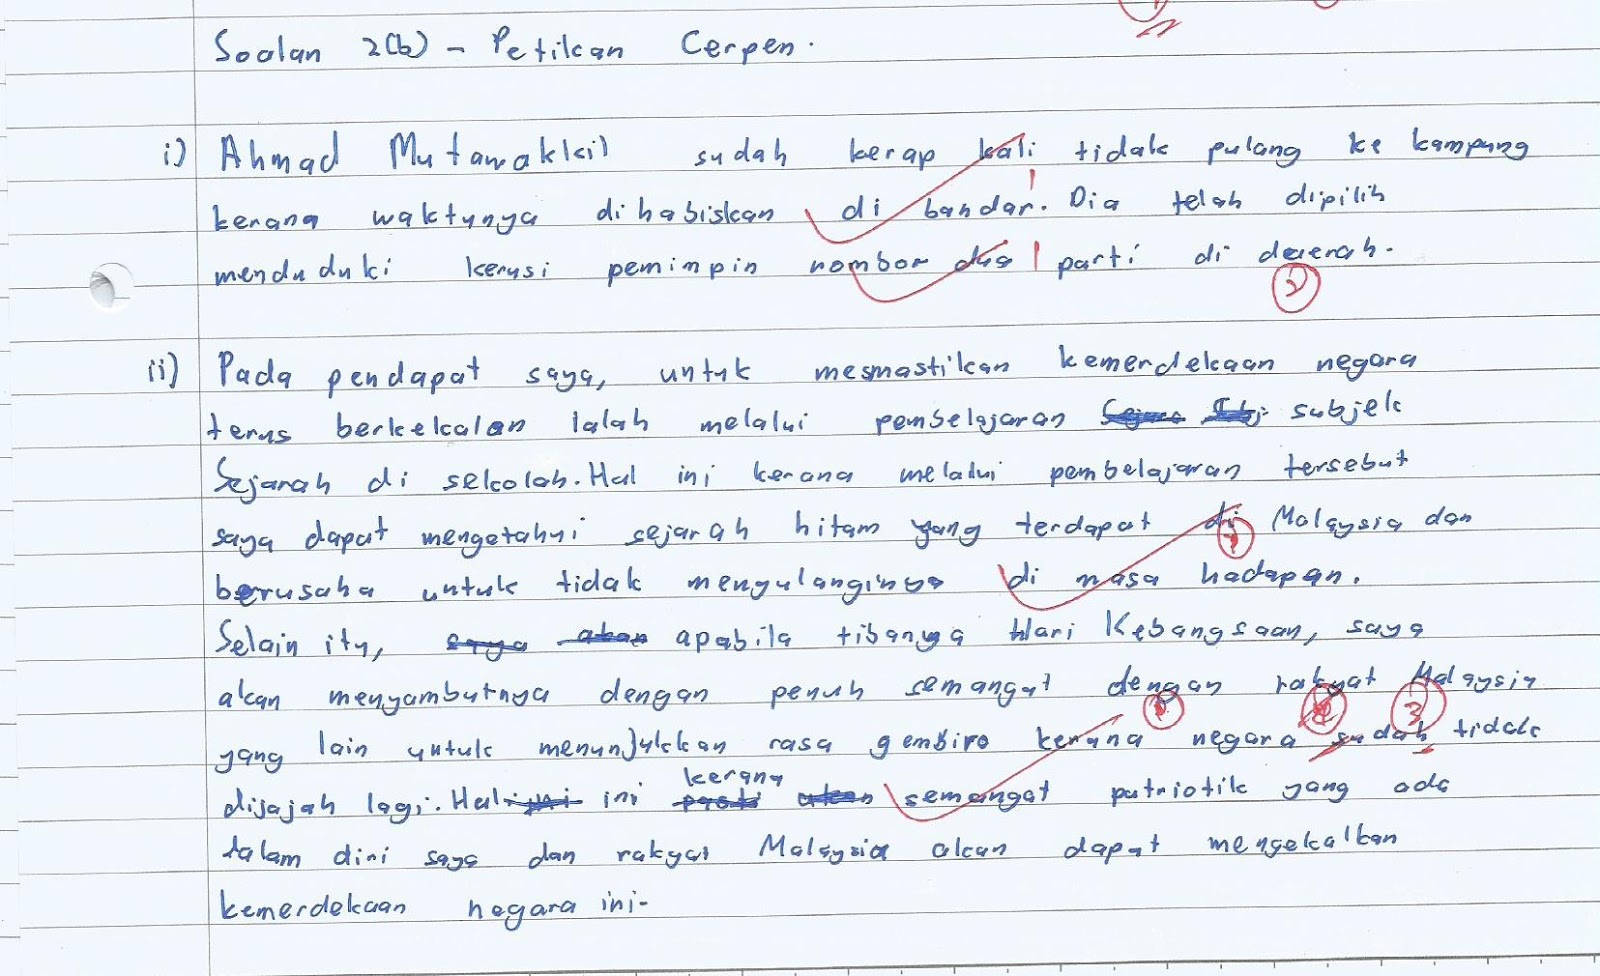 Soalan 2(b) - Petikan Cerpen.
i) Ahmad Mutawakkil sudah kerap kali tidak pulang ke kampung
kerana waktunya dihabiskan di bandar. Dia telah dipilih
menduduki kerusi pemimpin nombor dua parti di daerah.
2
ii) Pada pendapat saya, untuk mesmastikan kemerdekaan negara
terus berkekalan ialah melalui pembelajaran subjek
Sejarah di sekolah. Hal ini kerana melalui pembelajaran tersebut
saya dapat mengetahui sejarah hitam yang terdapat di Malaysia dan
berusaha untuk tidak mengulanginya di masa hadapan.
Selain itu, saya akan apabila tibanya Hari Kebangsaan, saya
akan menyambutnya dengan penuh semangat dengan rakyat Malaysia
3
yang lain untuk menunjukkan rasa gembira kerana negara sudah tidak
kerana
dijajah lagi. Hal ini semangat patriotik yang ada
dalam diri saya dan rakyat Malaysia akan dapat mengekalkan
kemerdekaan negara ini.